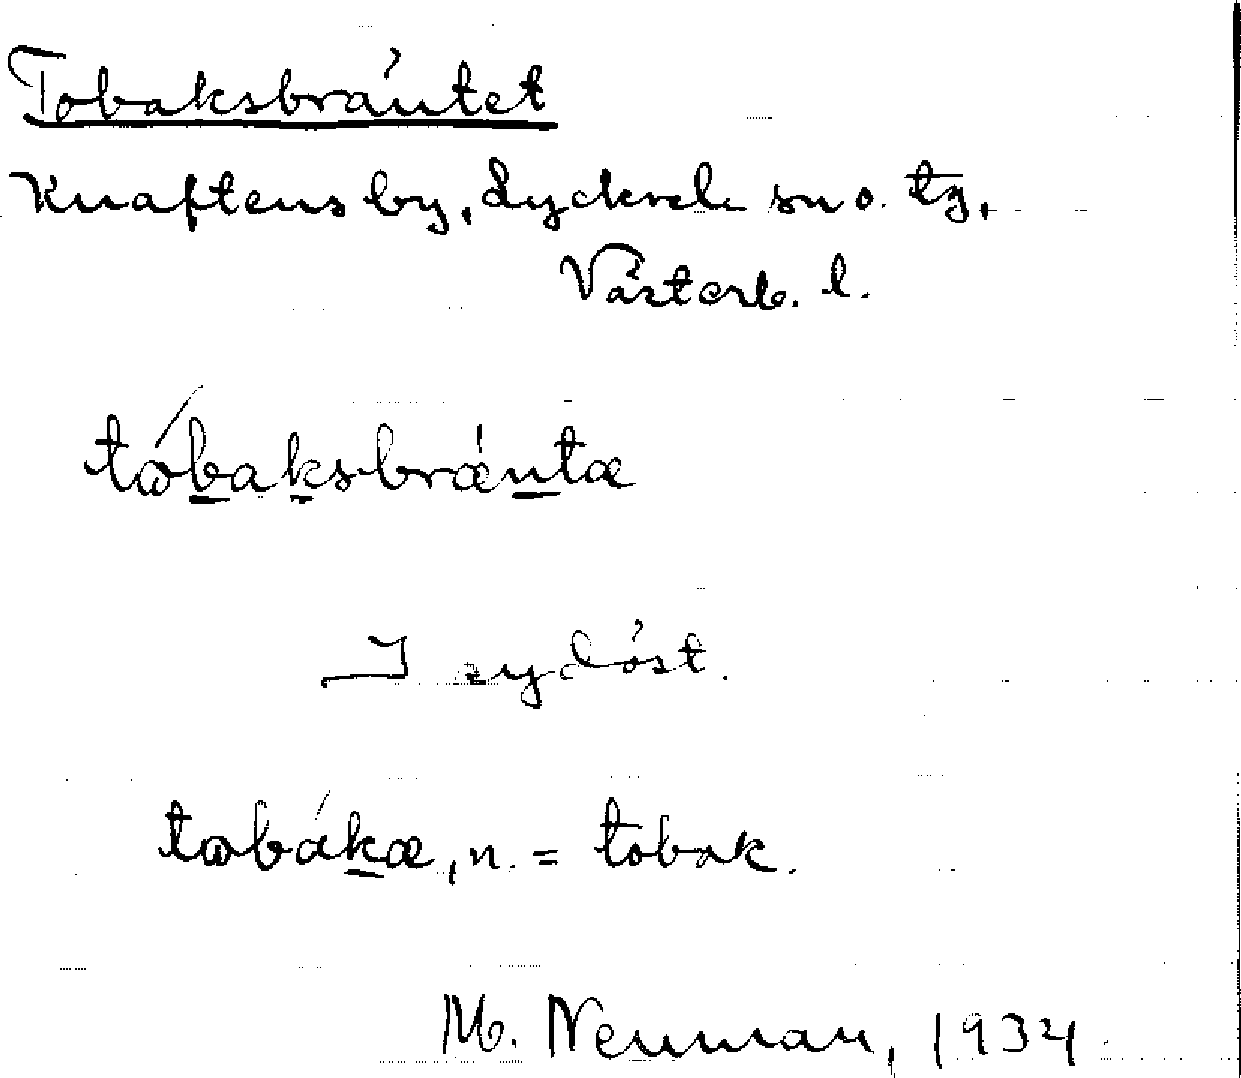 Tobaksbräntet
Knaftens by, Lycksele sn o. tg,
Västerb. l.
tωbaksbräntæ
I sydöst.
tωbákæ, n. = tobak.
M. Neuman, 1934